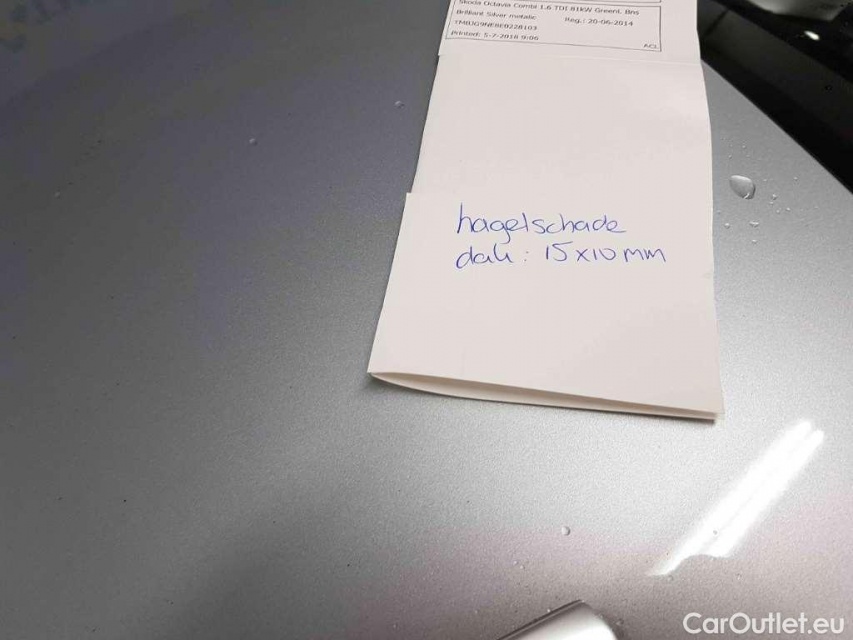 Skoda Octavia Combi 1.6 TDI 81kW Greenl. Bns
Brilliant Silver metalic Reg.: 20-06-2014
Printed: 5-7-2018 9:06
ACL
hagelschade
dak : 15x10 mm
CarOutlet.eu